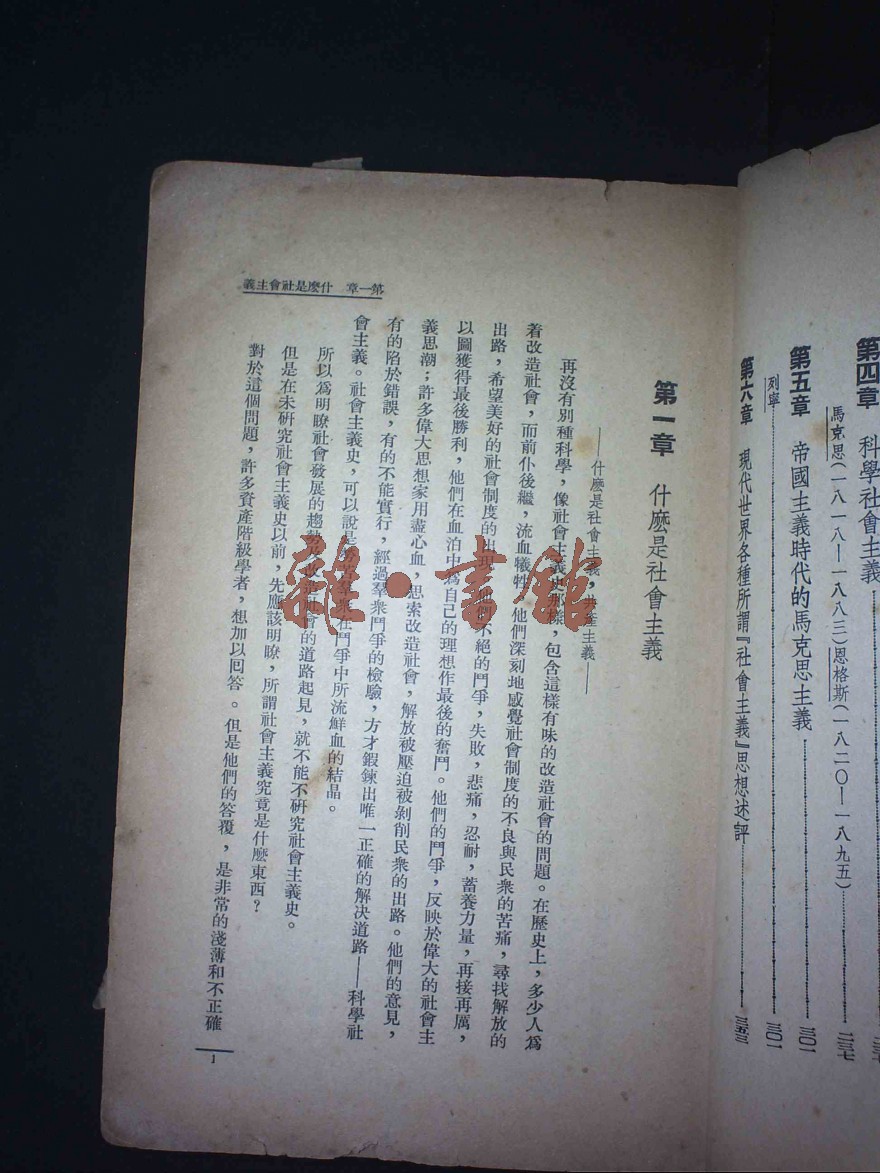 第四章　科學社會主義
馬克思(一八一八—一八八三)恩格斯(一八二〇—一八九五)……二三七
第五章　帝國主義時代的馬克思主義……三〇一
列寧……三〇一
第六章　現代世界各種所謂『社會主義』思想述評……三五三
第一章　什麼是社會主義
第一章　什麼是社會主義
——什麼是社會主義，共產主義——
再沒有別種科學，像社會主義史那樣，包含這樣有味的改造社會的問題。在歷史上，多少人為
着改造社會，而前仆後繼，流血犧牲，他們深刻地感覺社會制度的不良與民衆的苦痛，尋找解放的
出路，希望美好的社會制度的出現，他們不絕的鬥爭，失敗，悲痛，忍耐，蓄養力量，再接再厲，
以圖獲得最後勝利，他們在血泊中為自己的理想作最後的奮鬥。他們的鬥爭，反映於偉大的社會主
義思潮；許多偉大思想家用盡心血，思索改造社會，解放被壓迫被剝削民衆的出路。他們的意見，
有的陷於錯誤，有的不能實行，經過羣衆鬥爭的檢驗，方才鍜鍊出唯一正確的解決道路——科學社
會主義。社會主義史，可以說是勞苦羣衆在鬥爭中所流鮮血的結晶。
所以爲明瞭社會發展的趨勢及改造社會的道路起見，就不能不研究社會主義史。
但是在未研究社會主義史以前，先應該明瞭，所謂社會主義究竟是什麼東西？
對於這個問題，許多資產階級學者，想加以回答。但是他們的答覆，是非常的淺薄和不正確
1
雜·書館